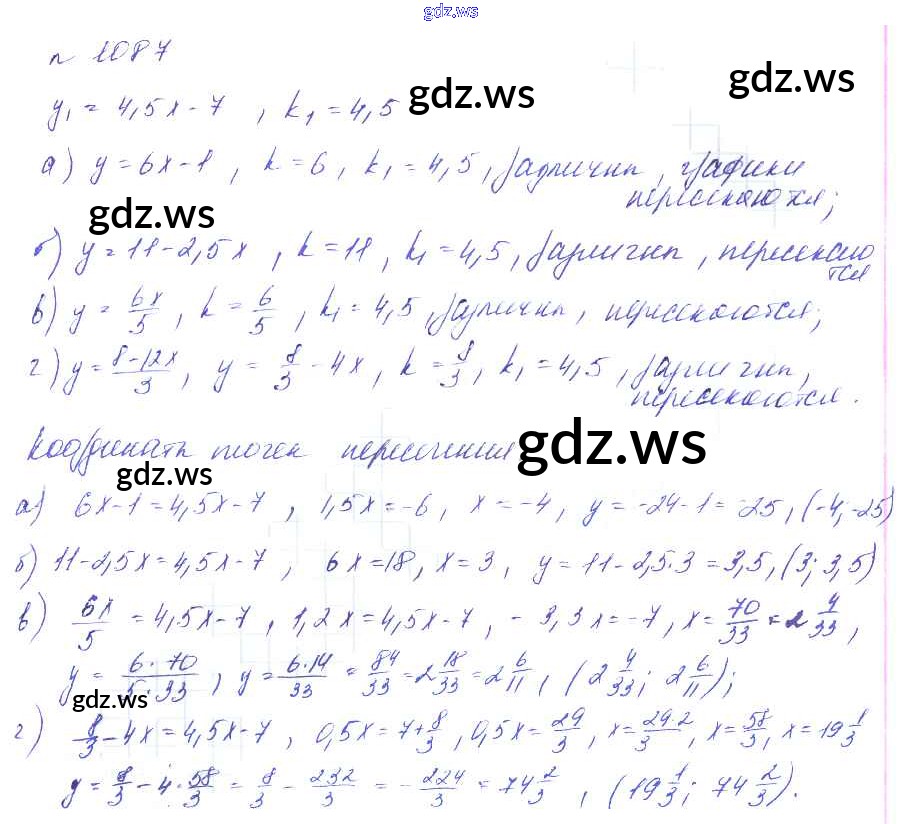 gdz.ws
n 1087
gdz.ws
y₁ = 4,5x - 7 , k₁ = 4,5 gdz.ws
а) y = 6x - 1 , k = 6 , k₁ = 4,5 , различны , графики
пересекаются;
gdz.ws
б) y = 11 - 2,5x , k = 11 , k₁ = 4,5 , различны , пересекаю
тся
в) y = 6x/5 , k = 6/5 , k₁ = 4,5 , различны , пересекаются;
г) y = 8-12x/3 , y = 8/3 - 4x , k = 8/3 , k₁ = 4,5 , различны,
пересекаются.
Координаты точек пересечения gdz.ws
gdz.ws
а) 6x - 1 = 4,5x - 7 , 1,5x = -6 , x = -4 , y = -24 - 1 = -25 , (-4; -25)
б) 11 - 2,5x = 4,5x - 7 , 6x = 18 , x = 3 , y = 11 - 2,5·3 = 3,5 , (3; 3,5)
в) 6x/5 = 4,5x - 7 , 1,2x = 4,5x - 7 , -3,3x = -7 , x = 70/33 = 2 4/33 ,
y = 6·70/5·33 , y = 6·14/33 = 84/33 = 2 18/33 = 2 6/11 , (2 4/33 ; 2 6/11);
gdz.ws
г) 8/3 - 4x = 4,5x - 7 , 0,5x = 7 + 8/3 , 0,5x = 29/3 , x = 29·2/3 , x = 58/3 , x = 19 1/3
y = 8/3 - 4·58/3 = 8/3 - 232/3 = - 224/3 = 74 2/3 , (19 1/3 ; 74 2/3).